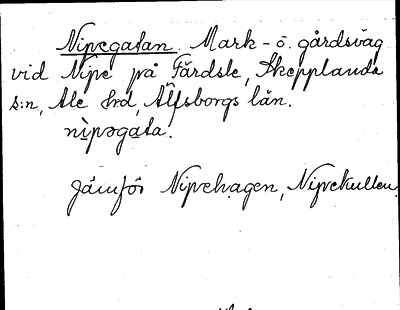 Nipegatan. Mark- o. gårdsväg
vid Nipe på Färdsle, Skepplanda
s:n, Ale hd, Älfsborgs län.
nìpəgàta.
Jämför Nipehagen, Nipekullen.